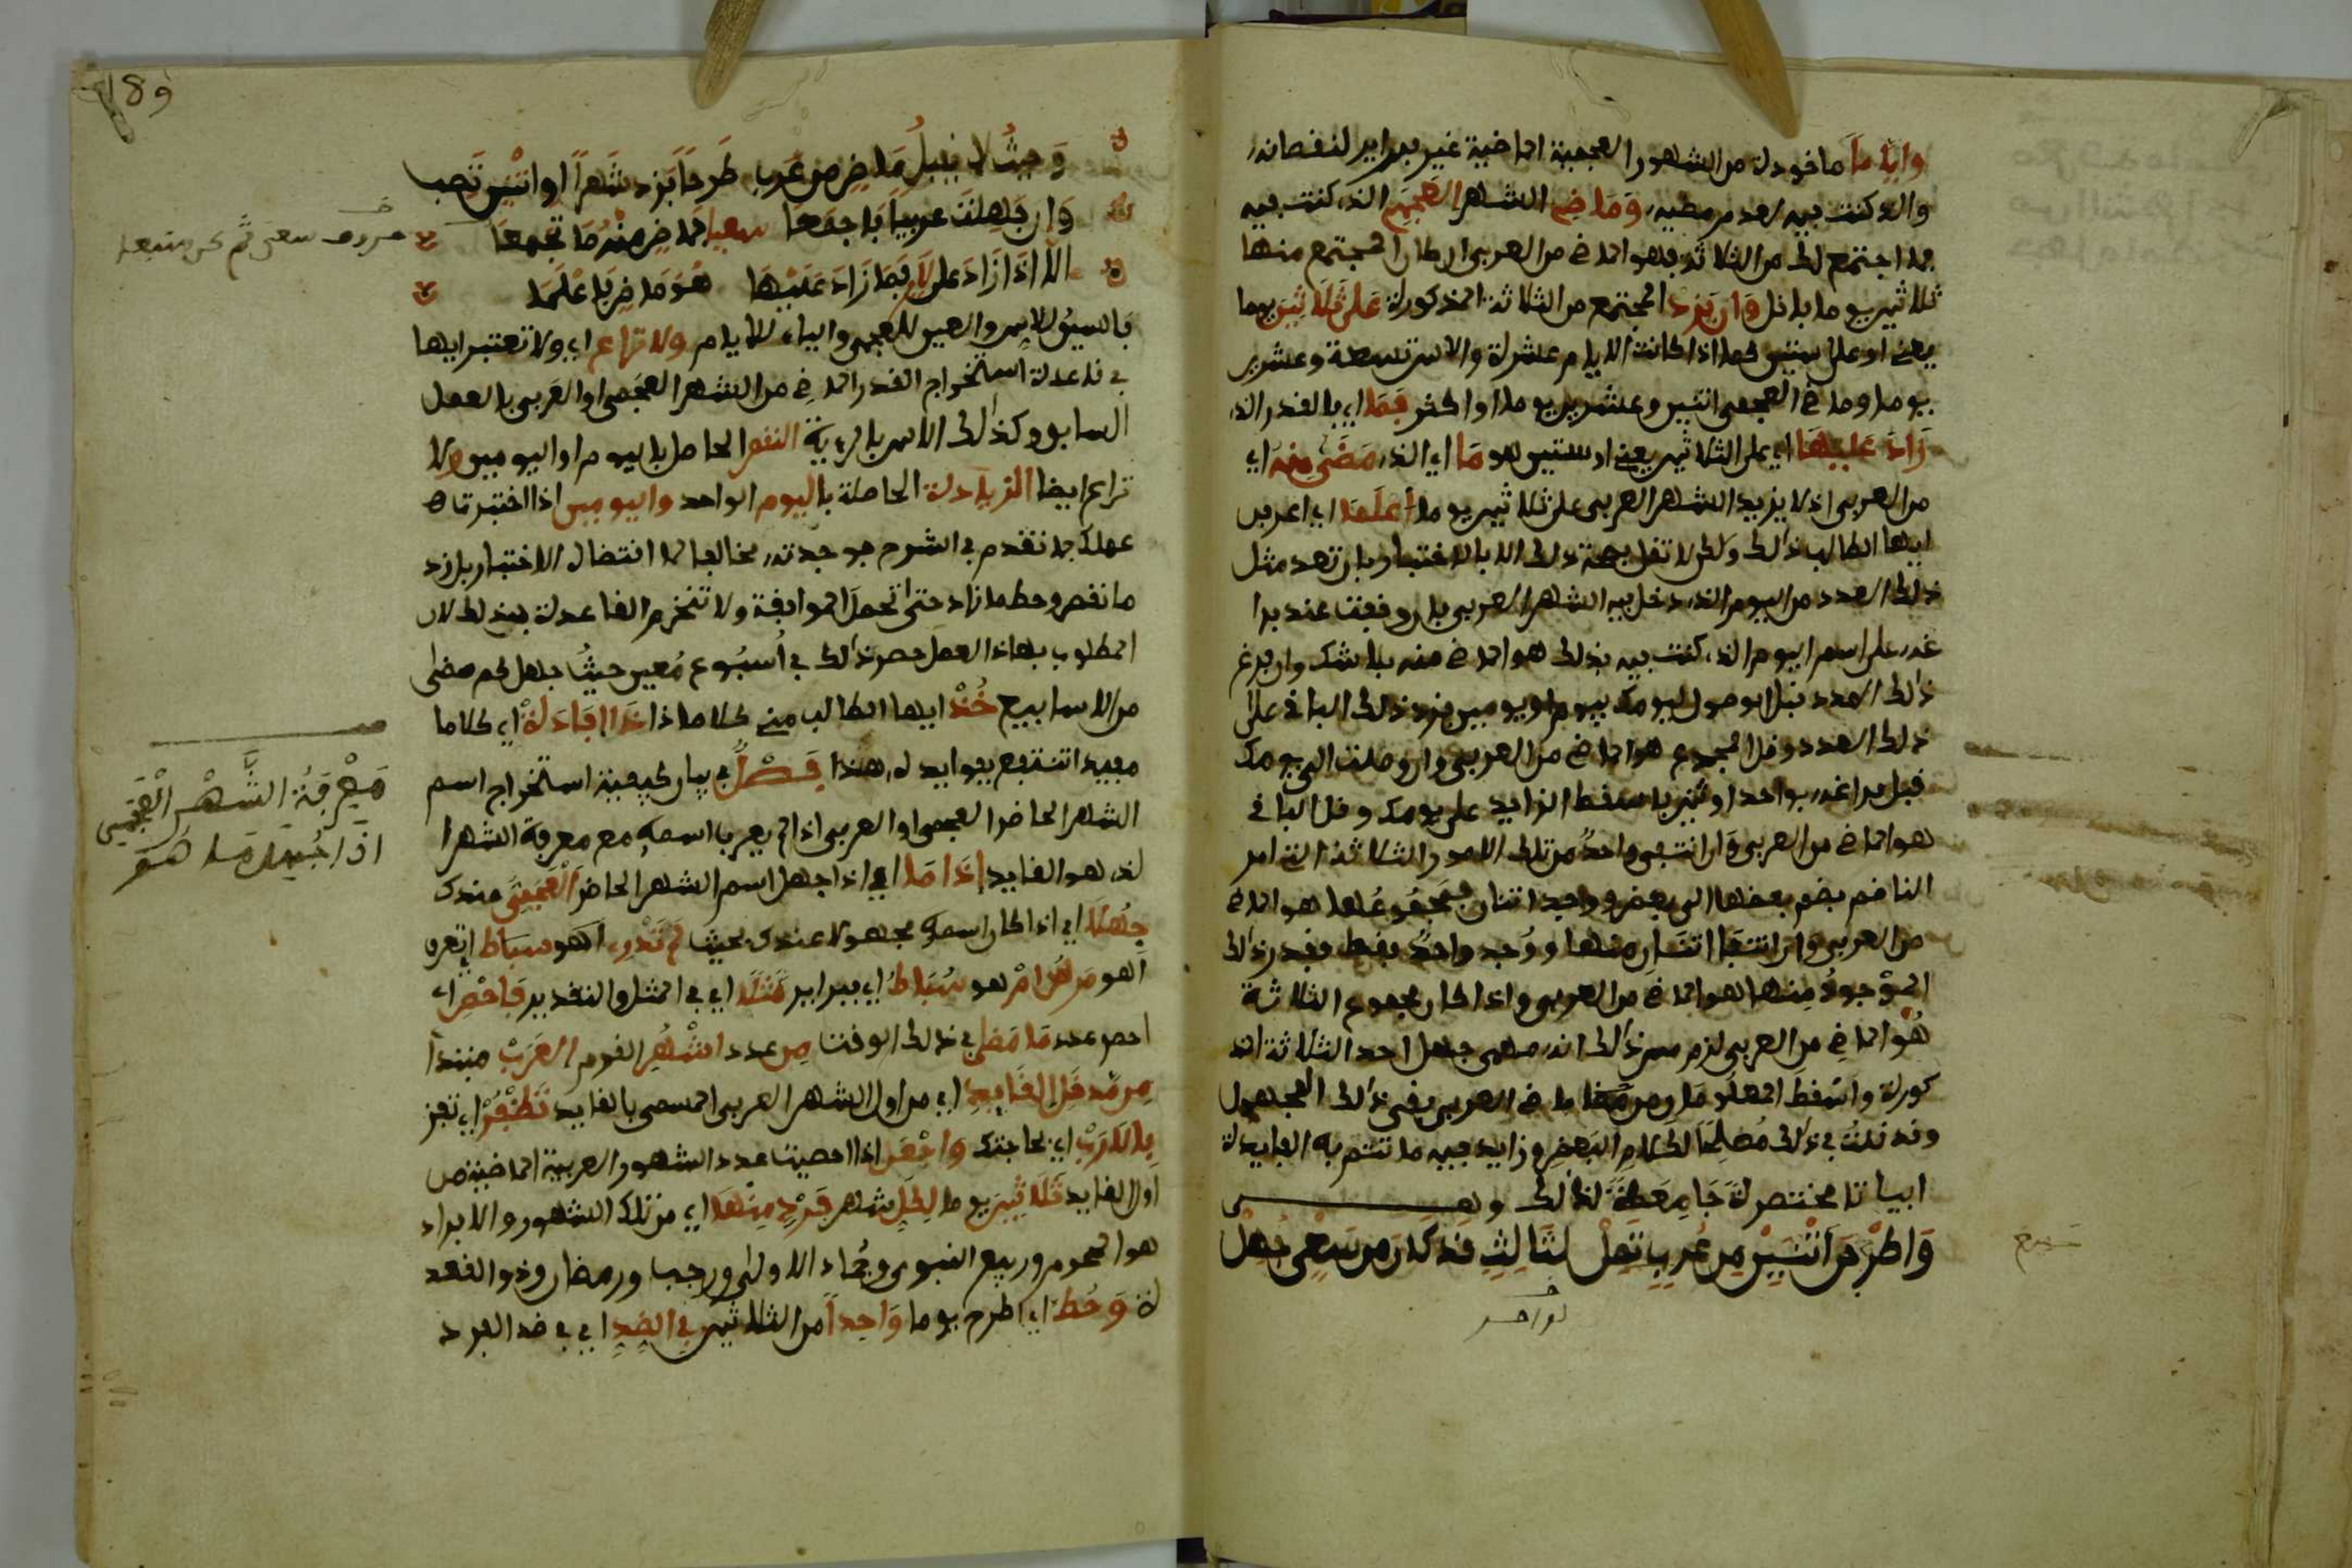 وأياما ماخوذة من الشهور العجمية الماضية غير فبراير لنقصانه
والذي كنت فيه بعد مرضيه، وماضي الشهر العجمي الذي كنت فيه
فما اجتمع لك من الثلاثة فهو الماضي من العربي ان كان المجتمع منها
ثلاثين يوما باقل وان يزد المجتمع من الثلاثة المذكورة على ثلاثين يوما
يعني او على ستين كما اذا كانت الايام عشرة والاس تسعة وعشرين
يوما وماضي العجمي اثنين وعشرين يوما او اكثر فما اي فالقدر الذي
زاد عليها اي على الثلاثين يعني او ستين هو ما اي الذي مضى منه اي
من العربي اذ لا يزيد الشهر العربي على ثلاثين يوما اعلما اي اعرف
ايها الطالب ذلك ولكن لا تقل بصحة ذلك الا بالاختبار بان تعد مثل
ذلك العدد من اليوم الذي دخل فيه الشهر العربي فان وقفت عند فرا
غه على اسم اليوم الذي كنت فيه فذلك هو الماضي منه بلا شك وان فرغ
ذلك العدد قبل الوصول ليومك بيوم او يومين فزد ذلك الباقي على
ذلك العدد وقل المجموع هو الماضي من العربي وان وصلت الى يومك
قبل فراغه بواحد او اثنين فاسقط الزايد على يومك وقل الباقي
هو الماضي من العربي وان انتفى واحد من تلك الامور الثلاثة التي امر
الناظم بضم بعضها الى بعض ووجد اثنان فمجموعهما هو الماضي
من العربي وان انتفا اثنان منها ووجد واحد فقط فقدر ذلك
الموجود منها هو الماضي من العربي واذا كان مجموع الثلاثة
هو الماضي من العربي لزم من ذلك انه مهمى جهل احد الثلاثة المذ
كورة واسقط المعلوم من ماضي العربي بقي ذلك المجهول
وقد قلت في ذلك مصلحا لكلام البعض وزايد فيه ما تتم به الفايدة
ابياتا مختصرة جامعة لذلك وهي
واطرح من اثنين من عرب تقل لثالث قد كان من سعي جهل
189
وحيث لا يقبل ماض من عرب طرحا فزد شهرا او اثنين تصب
وان جهلت عربيا فاجمعا سعيا فماض منه ما تجمعا
الا اذا زاد على لام فما زاد عليها هو ماض فاعلما
فالسين للاس والعين للعجمي والياء للايام ولا تراع اي ولا تعتبر ايها
في قاعدة استخراج القدر الماضي من الشهر العجمي او العربي بالعمل
السابق وكذلك الاس بالرءية النقص الحاصل باليوم او اليومين ولا
تراع ايضا الزيادة الحاصلة باليوم الواحد واليومين اذا اختبرت
عملك بما تقدم في الشرح فوجدته مخالفا لما الاختبار بل زد
ما نقص وحط ما زاد حتى تحصل الموافقة ولا تنخرم القاعدة بذلك لان
المطلوب بهاذا العمل حصر ذلك في اسبوع معين حيث جهل كم مضى
من الاسابيع خذ ايها الطالب مني كلاما ذا افادة اي كلاما
مفيدا تنتفع بفوايده هذا فصل في بيان كيفية استخراج اسم
الشهر الحاضر العجمي او العربي اذا لم يعرف اسمه مع معرفة الشهر ا
لذي هو الفايد اذا ما اي اذا جهل اسم الشهر الحاضر العجمي عندك
جهلا اي اذا كان اسمه مجهولا عندك بحيث لم تدر اهو سباط
اهو مرس ام هو سباط اي فبراير مثلا اي في المثل والتقدير فاحص اي
احص عدد ما مضى في ذلك الوقت من عدد اشهر القوم العرب مبتدأ
من مدخل الفايد اي من اول الشهر العربي المسمى بالفايد تظفر اي تفز
بالارب اي بحاجتك واجعل اذا احصيت عدد الشهور العربية الماضية من
اول الفايد ثلاثين يوما لكل شهر فرد منها اي من تلك الشهور والافراد
هو المحرم وربيع النبوي وجماد الاولى ورجب ورمضان وذو القعد
ة وحط اي اطرح يوما واحدا من الثلاثين في الضد اي في ضد الفرد
معرفة الشهر العجمي
اذا جهل ما هو